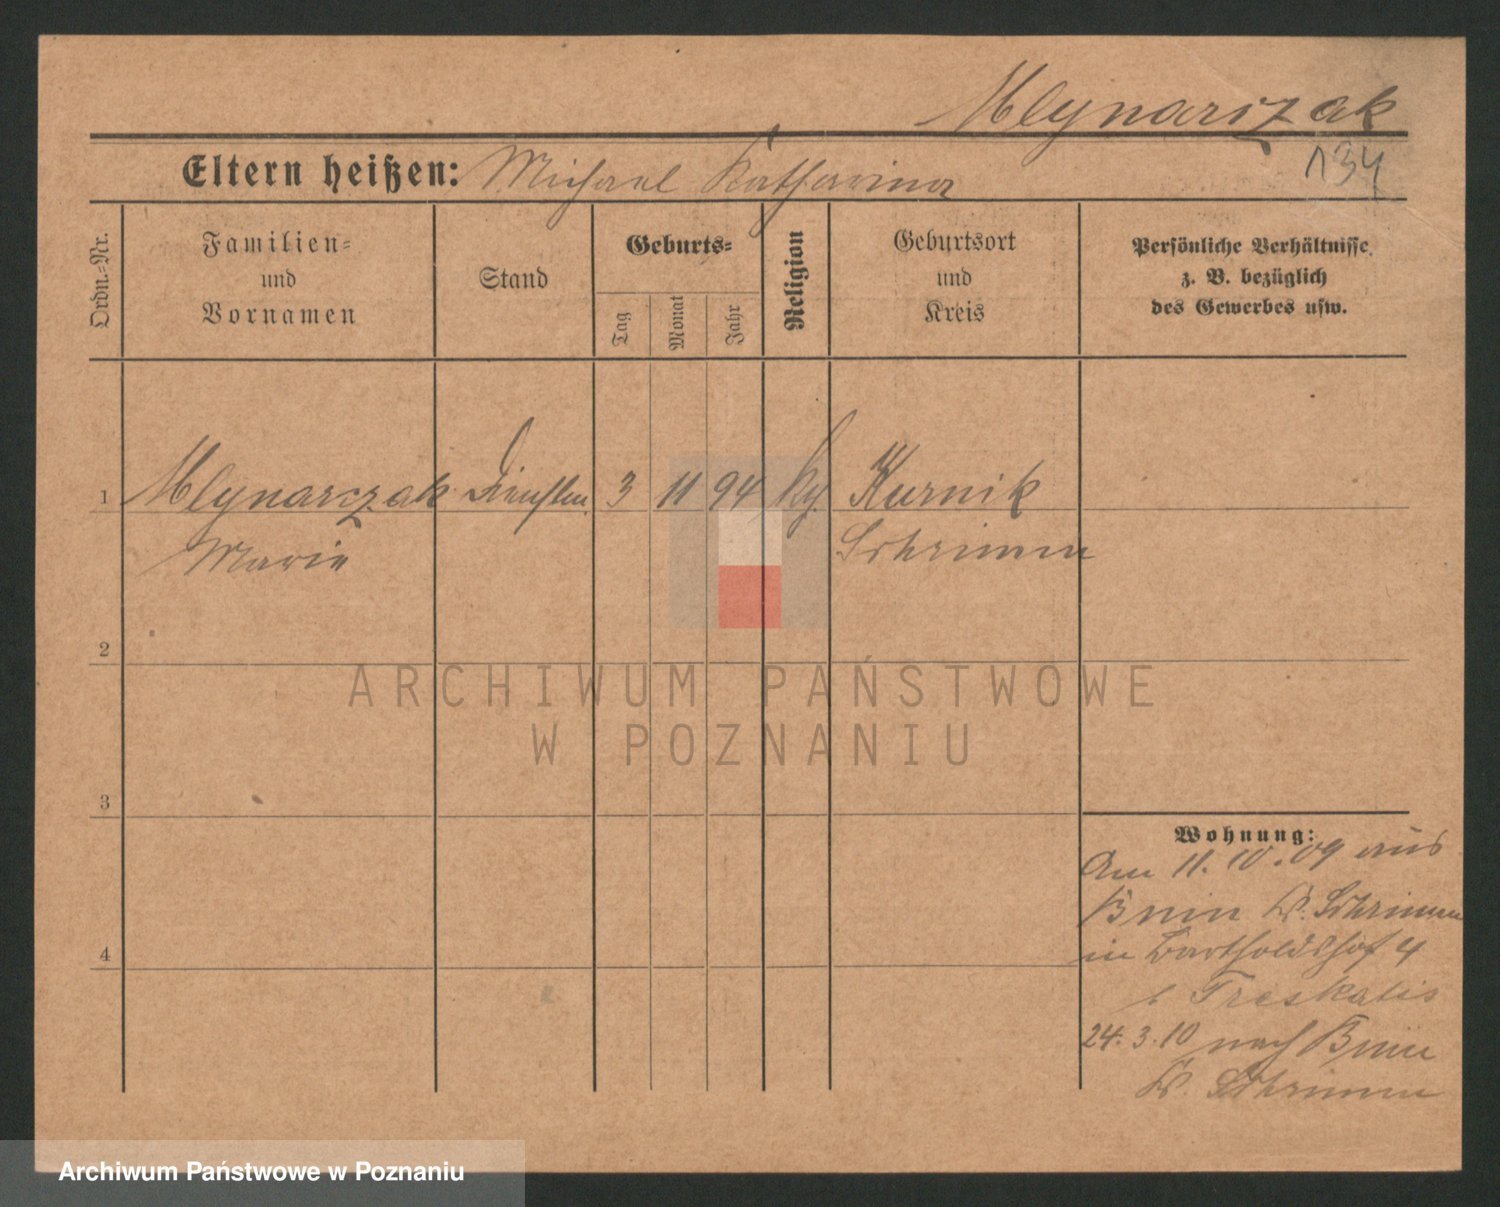 Mlynarczak
134
Eltern heißen: Michael Katharina
Ordn.-Nr.
Familien-
und
Vornamen
Stand
Geburts-
Tag
Monat
Jahr
Religion
Geburtsort
und
Kreis
Persönliche Verhältnisse
z. B. bezüglich
des Gewerbes usw.
1 Mlynarczak 3 11 94 Kurnik
Marie Schrimm
2
ARCHIWUM PAŃSTWOWE
W POZNANIU
3
Wohnung:
Am 11.10.09 aus
Bnin K. Schrimm
in Bartholdshof 4
b. Treskatis
4
24.3.10 nach Bnin
K. Schrimm
Archiwum Państwowe w Poznaniu